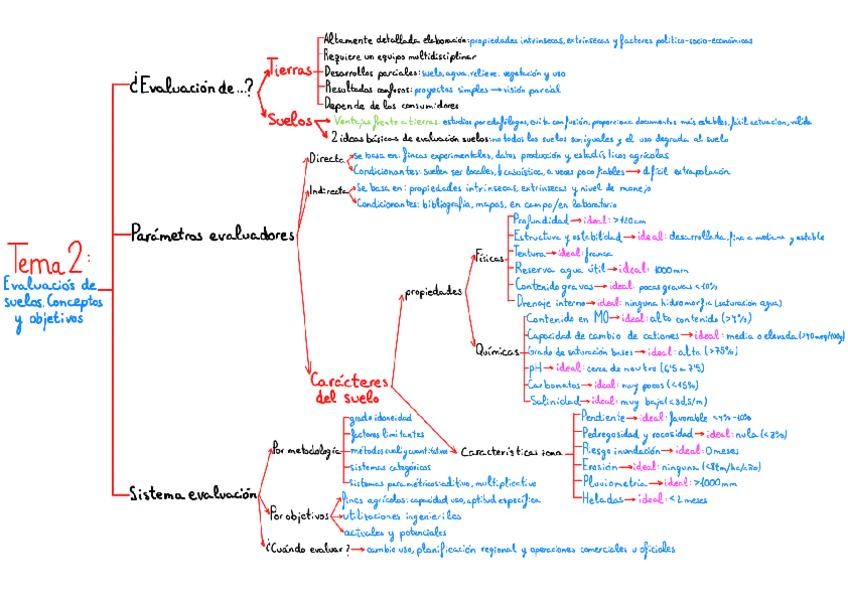 Tema 2:
Evaluación de
suelos. Conceptos
y objetivos
¿Evaluación de...?
Tierras
Altamente detallada elaboración: propiedades intrínsecas, extrínsecas y factores político-socio-económicos
Requiere un equipo multidisciplinar
Desarrollos parciales: suelo, agua, relieve, vegetación y uso
Resultados confusos: proyectos simples → visión parcial
Depende de los consumidores
Suelos
Ventajas frente a tierras: estudios por edafólogos, evita confusión, proporciona documentos más estables, fácil actuación, válida
2 ideas básicas de evaluación suelos: no todos los suelos son iguales y el uso degrada al suelo
Parámetros evaluadores
Directa
se basa en: fincas experimentales, datos producción y estadísticos agrícolas
Condicionantes: suelen ser locales, casuística, a veces poco fiables → difícil extrapolación
Indirecta
Se basa en: propiedades intrínsecas, extrínsecas y nivel de manejo
Condicionantes: bibliografía, mapas, en campo/en laboratorio
Carácteres
del suelo
propiedades
Físicas
Profundidad → ideal: >120cm
Estructura y estabilidad → ideal: desarrollada, fina a mediana y estable
Textura → ideal: franca
Reserva agua útil → ideal: 1000mm
Contenido gravas → ideal: pocas gravas <10%
Drenaje interno → ideal: ninguna hidromorfía (saturación agua)
Químicas
Contenido en MO → ideal: alto contenido (>4%)
Capacidad de cambio de cationes → ideal: media o elevada
Grado de saturación bases → ideal: alta (>75%)
pH → ideal: cerca de neutro (6'5 a 7'5)
Carbonatos → ideal: muy pocos (<15%)
Salinidad → ideal: muy baja
Características zona
Pendiente → ideal: favorable
Pedregosidad y rocosidad → ideal: nula
Riesgo inundación → ideal: 0 meses
Erosión → ideal: ninguna
Pluviometría → ideal: >1000mm
Heladas → ideal: <2 meses
Sistema evaluación
Por metodología
grado idoneidad
factores limitantes
métodos cuali y cuantitativos
sistemas categóricos
sistemas paramétricos: aditivo, multiplicativo
Por objetivos
fines agrícolas: capacidad uso, aptitud específica
utilizaciones ingenieriles
actuales y potenciales
¿Cuándo evaluar? → cambio uso, planificación regional y operaciones comerciales u oficiales